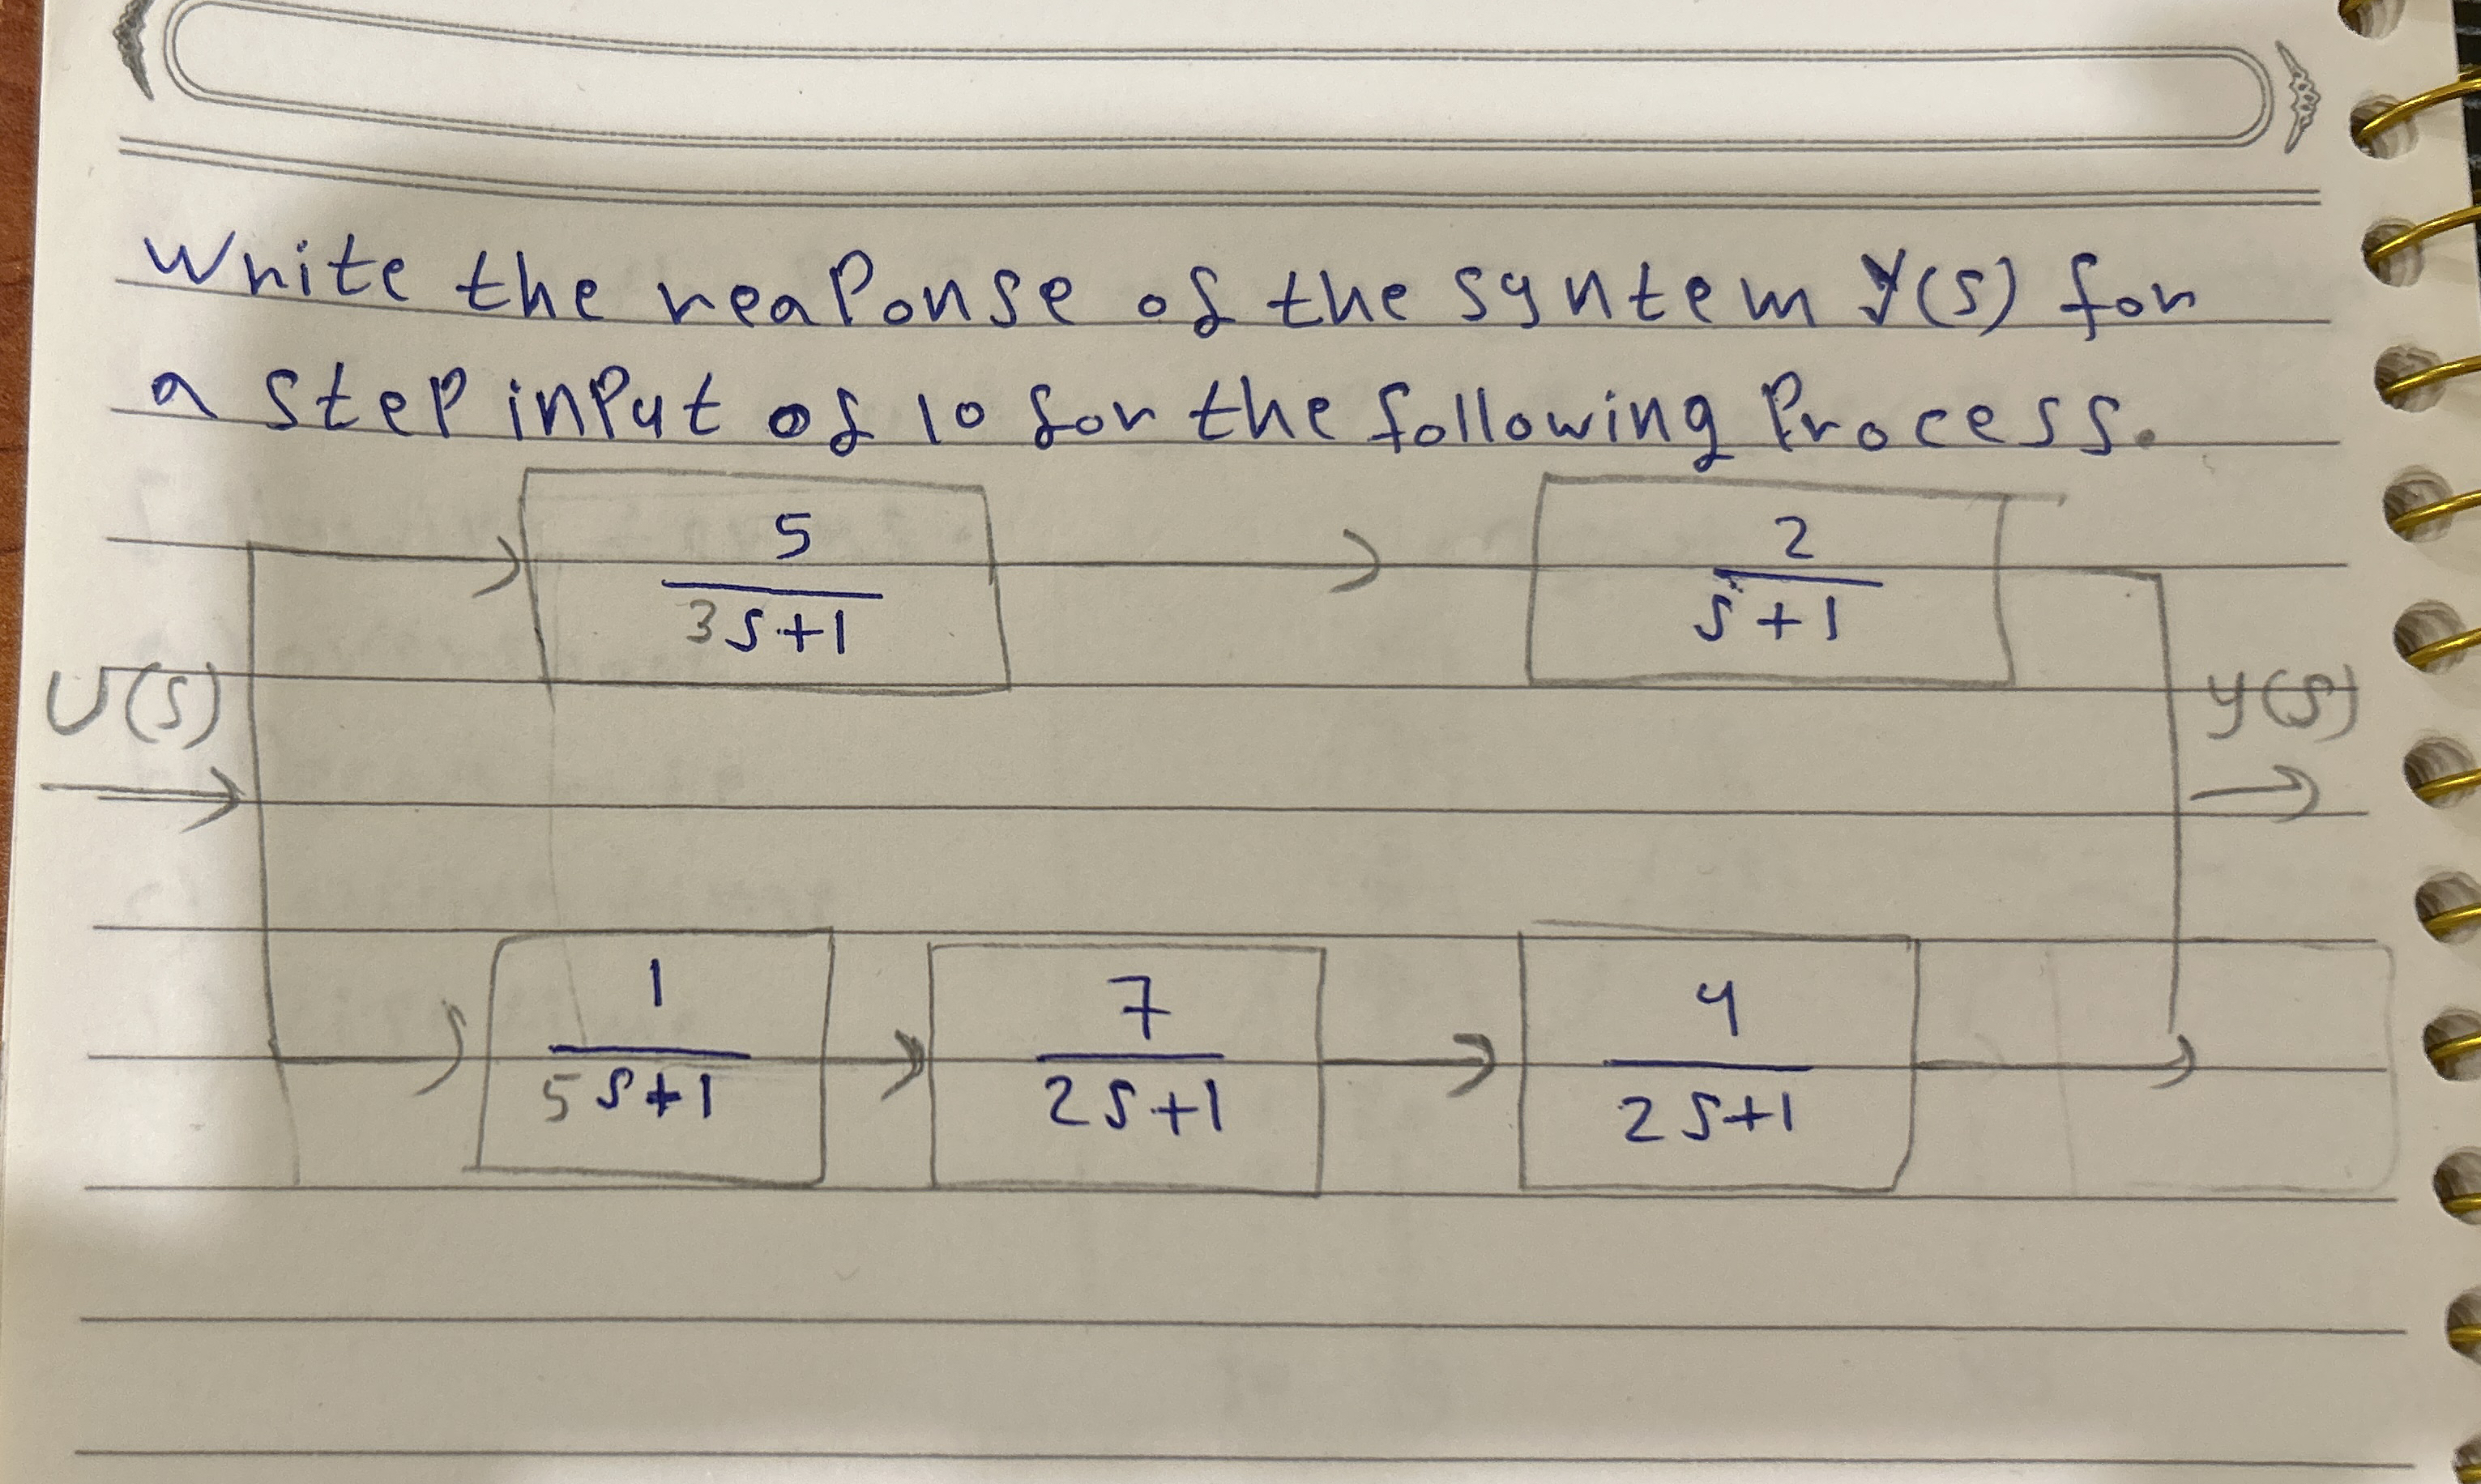 Write the reaPonse of the syntem Y(s) for
a step input of 10 for the following Process.
5
3s+1
2
s+1
U(s)
y(s)
1
5s+1
7
2s+1
4
2s+1